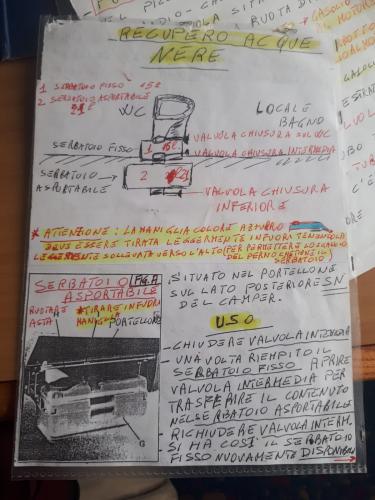 RECUPERO ACQUE
NERE
1 SERBATOIO FISSO 15l
2 SERBATOIO ASPORTABILE
21l
WC
LOCALE
BAGNO
VALVOLA CHIUSURA SUL WC
SERBATOIO FISSO
1 15l
VALVOLA CHIUSURA INTERMEDIA
SERBATOIO
ASPORTABILE
2
VALVOLA CHIUSURA
INFERIORE
* ATTENZIONE: LA MANIGLIA COLORE AZZURRO
DEVE ESSERE TIRATA LEGGERMENTE INFUORI TENENDOLA
LEGGERMENTE SOLLEVATA VERSO L'ALTO (PER PERMETTERE LO SGANCIO
DEL PERNO CHE TIENE IL
SERBATOIO)
SERBATOIO FIG. A
ASPORTABILE
RUOTARE
ASTA
*TIRARE INFUORI
MANIGLIA
PORTELLONE
G
SITUATO NEL PORTELLONE
SUL LATO POSTERIORE SN
DEL CAMPER.
U.S.O
- CHIUDERE VALVOLA INTERMEDIA
- UNA VOLTA RIEMPITO IL
SERBATOIO FISSO APRIRE
VALVOLA INTERMEDIA PER
TRASFERIRE IL CONTENUTO
NEL SERBATOIO ASPORTABILE
- RICHIUDERE VALVOLA INTERM.
SI HA COSÌ IL SERBATOIO
FISSO NUOVAMENTE DISPONIBILE